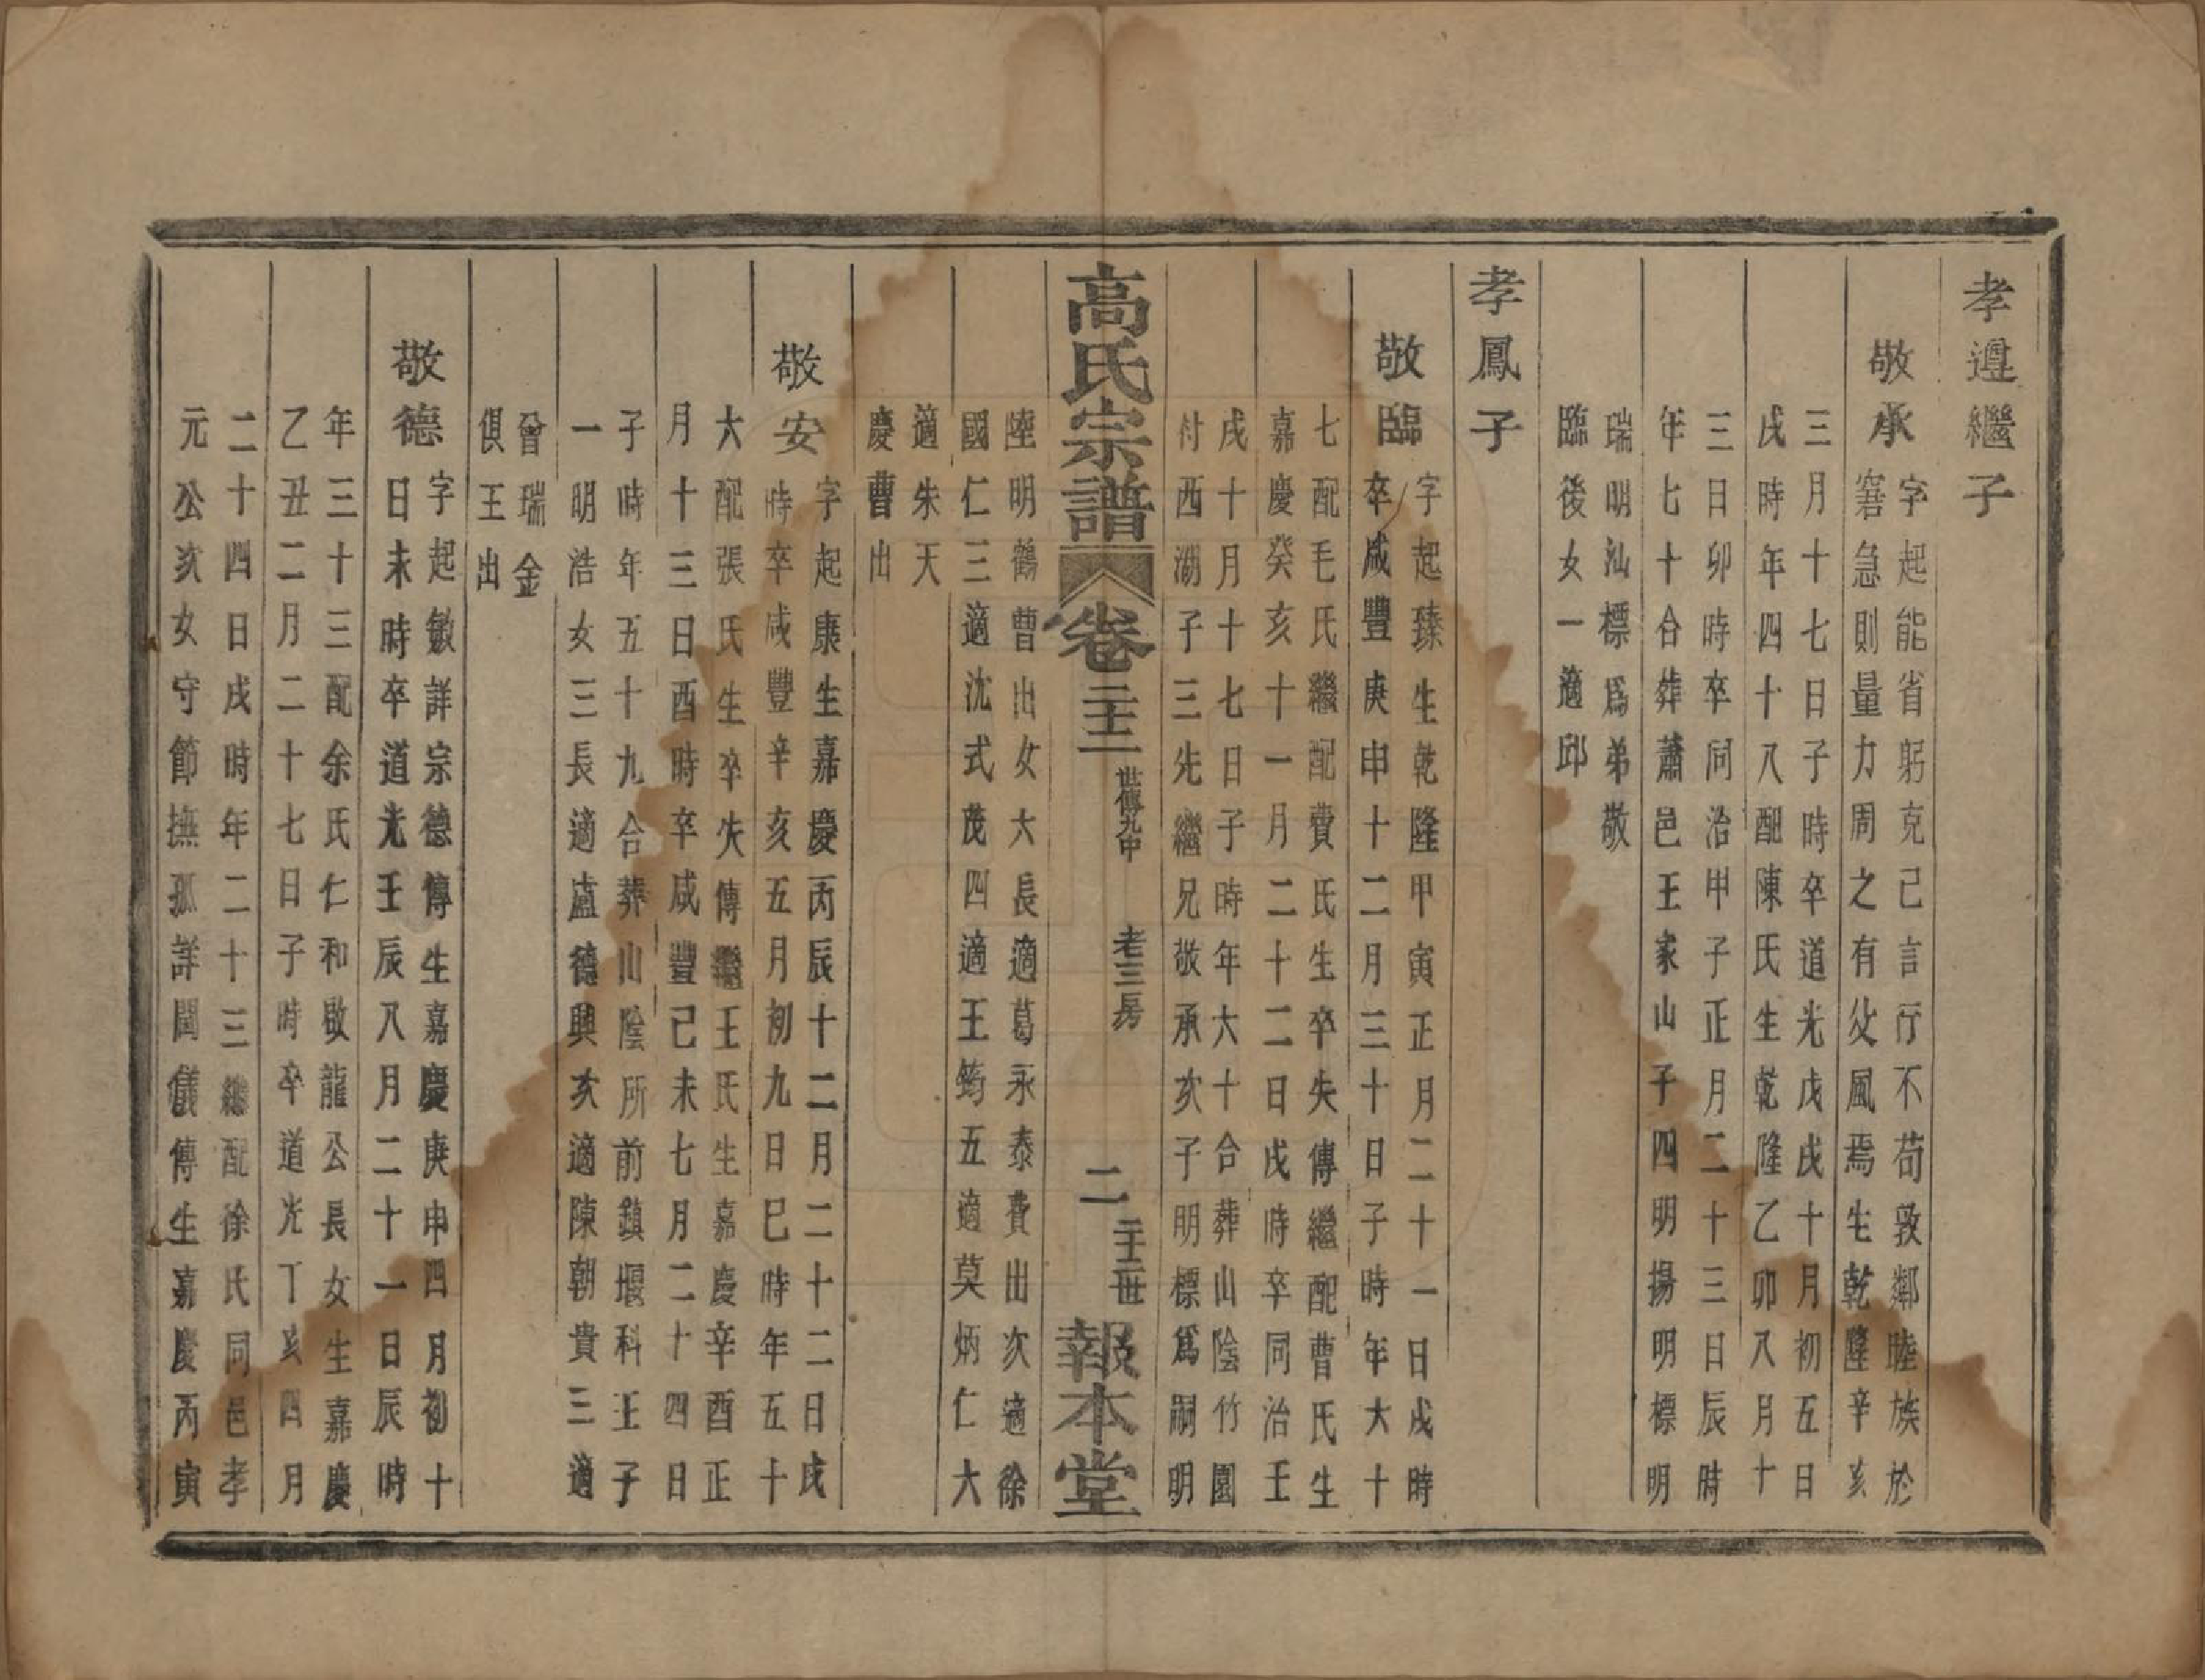 孝遵繼子
敬承
字起能省躬克己言行不苟敦鄰睦族於
窘急則量力周之有父風焉生乾隆辛亥
三月十七日子時卒道光戊戌十月初五日
戌時年四十八配陳氏生乾隆乙卯八月十
三日卯時卒同治甲子正月二十三日辰時
年七十合葬蕭邑王家山子四明揚明標明
瑞明汕標爲弟敬
臨後女一適邱
孝鳳子
敬臨
字起臻生乾隆甲寅正月二十一日戌時
卒咸豐庚申十二月三十日子時年六十
七配毛氏繼配費氏生卒失傳繼配曹氏生
嘉慶癸亥十一月二十二日戌時卒同治壬
戌十月十七日子時年六十合葬山陰竹園
付西湖子三先繼兄敬承次子明標爲嗣明
陞明鶴曹出女六長適葛永泰費出次適徐
國仁三適沈式茂四適王筠五適莫炳仁六
適朱天
慶曹出
高氏宗譜 卷二十二 世傳九中 老三房 二 二十二世 報本堂
敬安
字起康生嘉慶丙辰十二月二十二日戌
時卒咸豐辛亥五月初九日巳時年五十
六配張氏生卒失傳繼王氏生嘉慶辛酉正
月十三日酉時卒咸豐己未七月二十四日
子時年五十九合葬山陰所前鎮堰科王子
一明浩女三長適盧德興次適陳朝貴三適
曾瑞金
俱王出
敬德
字起敏詳宗德傳生嘉慶庚申四月初十
日未時卒道光壬辰八月二十一日辰時
年三十三配余氏仁和敬龍公長女生嘉慶
乙丑二月二十七日子時卒道光丁亥四月
二十四日戌時年二十三繼配徐氏同邑孝
元公次女守節撫孤詳閫儀傳生嘉慶丙寅